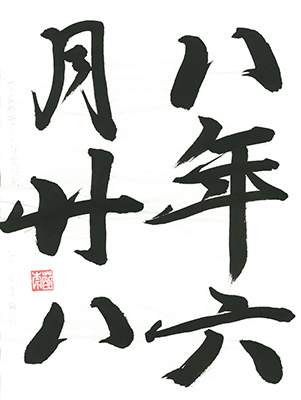 八年六
月廿八